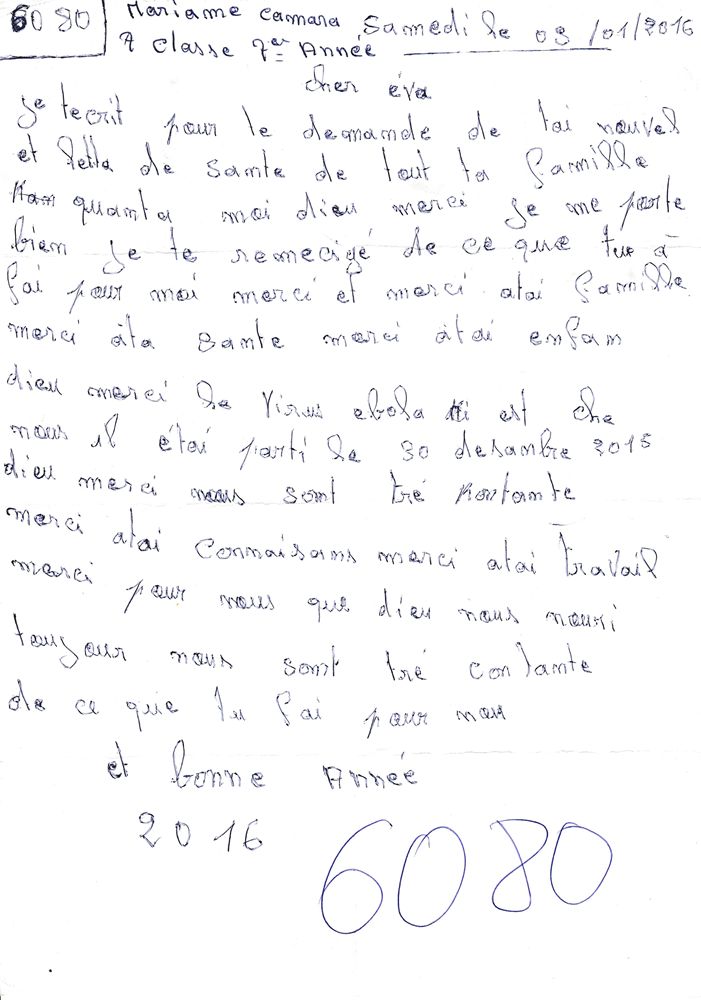 6080
Mariame camara Samedi le 03/01/2016
7 classe 7er Année
cher éva
Je tecrit pour le demande de tai nouvel
et letta de sante de tout ta famille
quanta moi dieu merci je me porte
bien je te remecigé de ce que tu à
fai pour moi merci et merci atai famille
merci àta sante merci àtai enfam
dieu merci le virus ebola est che
nous il étai parti le 30 desambre 2015
dieu merci nous sont tré kontante
merci atai connaisans merci atai travail
merci pour nous que dieu nous nouri
toujour nous sont tré contante
de ce que tu fai pour nou
et bonne Année
2016
6080